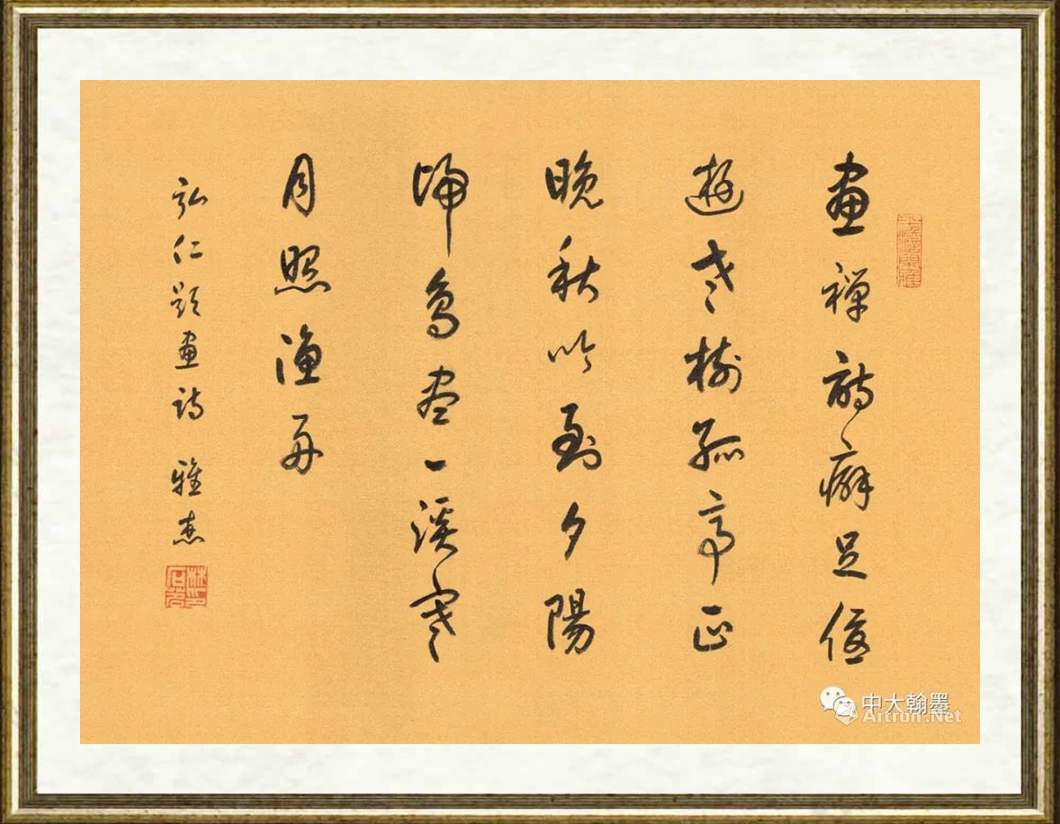 畫禪詩癖足優
遊老樹孤亭正
晚秋吟到夕陽
歸鳥盡一溪寒
月照漁舟
弘仁題畫詩 雅杰
中大翰墨
Artron.Net